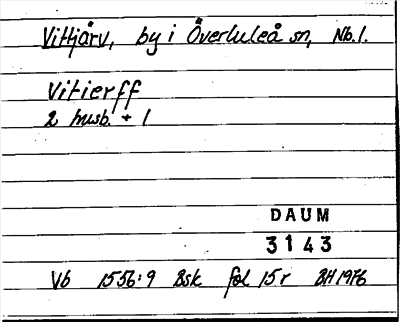 Vittjärv, by i Överluleå sn, Nb.l.
Vitierff
2 husb. + 1
DAUM
3143
Vb 1556:9 Bsk fol 15r BH 1976